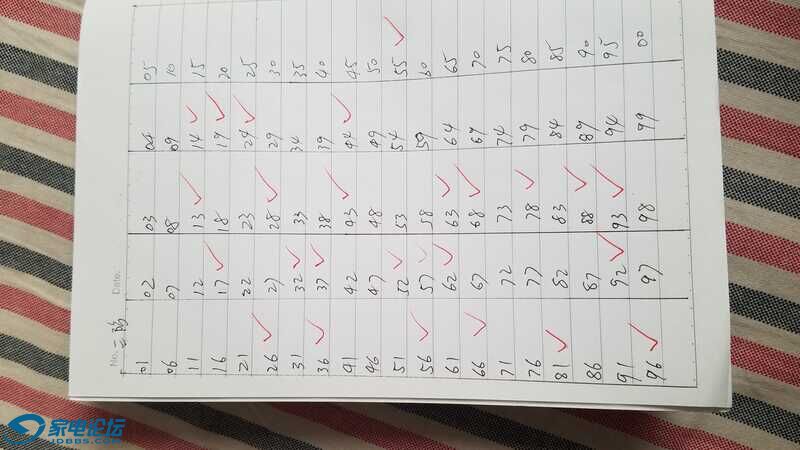 No. Date.
01 02 03 04 05
06 07 08 09 10
11 12 13 14 15
16 17 18 19 20
21 22 23 24 25
26 27 28 29 30
31 32 33 34 35
36 37 38 39 40
41 42 43 44 45
46 47 48 49 50
51 52 53 54 55
56 57 58 59 60
61 62 63 64 65
66 67 68 69 70
71 72 73 74 75
76 77 78 79 80
81 82 83 84 85
86 87 88 89 90
91 92 93 94 95
96 97 98 99 00
家电论坛
JDBBS.COM